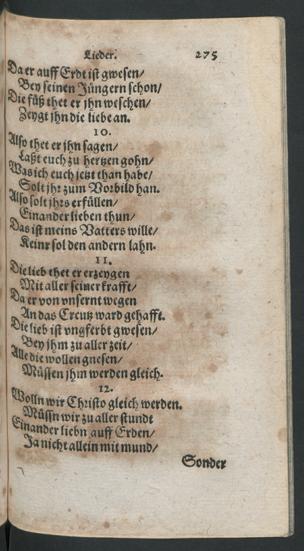 Lieder. 275
Da er auff Erdt ist gwesen/
Bey seinen Jüngern schon/
Die füß thet er jhn weschen/
Zeygt jhn die liebe an.
10.
Also thet er jhn sagen/
Laßt euch zu hertzen gohn/
Was ich euch jetzt than habe/
Solt jhr zum Vorbild han.
Also solt jhrs erfüllen/
Einander lieben thun/
Das ist meins Vatters wille/
Keinr sol den andern lahn.
11.
Die lieb thet er erzeygen
Mit aller seiner krafft/
Da er von vnsernt wegen
An das Creutz ward gehafft.
Die lieb ist vngferbt gwesen/
Bey jhm zu aller zeit/
Alle die wollen gnesen/
Müssen jhm werden gleich.
12.
Wolln wir Christo gleich werden.
Müssn wir zu aller stundt
Einander liebn auff Erden/
Ja nicht allein mit mund/
Sonder